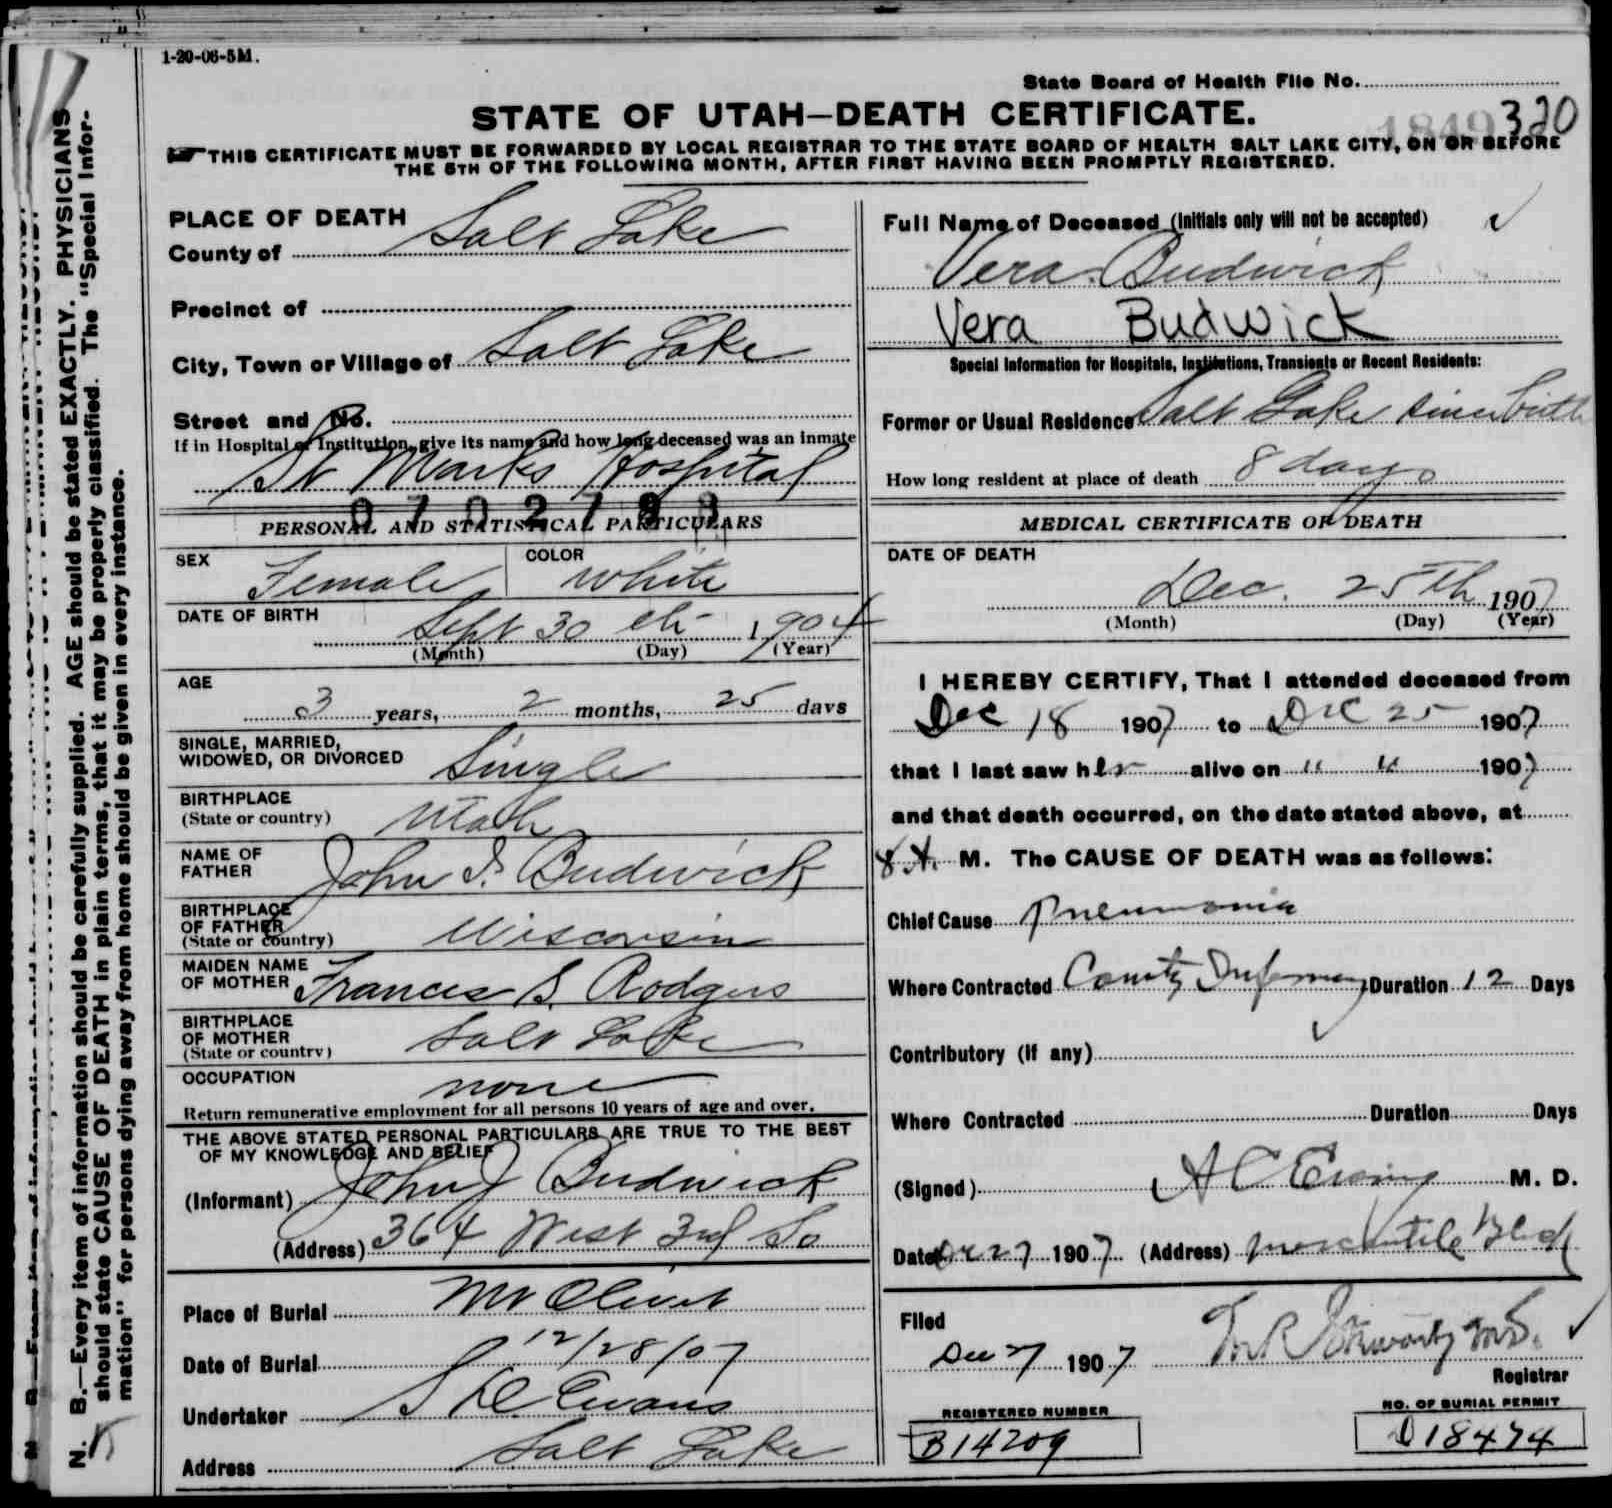 1-20-06-5M.
State Board of Health File No.
320
STATE OF UTAH—DEATH CERTIFICATE.
THIS CERTIFICATE MUST BE FORWARDED BY LOCAL REGISTRAR TO THE STATE BOARD OF HEALTH SALT LAKE CITY, ON OR BEFORE
THE 5TH OF THE FOLLOWING MONTH, AFTER FIRST HAVING BEEN PROMPTLY REGISTERED.
N. B.—Every item of information should be carefully supplied. AGE should be stated EXACTLY. PHYSICIANS
should state CAUSE OF DEATH in plain terms, that it may be properly classified. The "Special Infor-
mation" for persons dying away from home should be given in every instance.
PLACE OF DEATH
County of Salt Lake
Precinct of
City, Town or Village of Salt Lake
Street and No.
If in Hospital or Institution, give its name and how long deceased was an inmate
St Marks Hospital
PERSONAL AND STATISTICAL PARTICULARS
SEX Female COLOR White
DATE OF BIRTH
Sept 30 th 1904
(Month) (Day) (Year)
AGE
3 years, 2 months, 25 days
SINGLE, MARRIED,
WIDOWED, OR DIVORCED Single
BIRTHPLACE
(State or country) Utah
NAME OF
FATHER John S. Budwick
BIRTHPLACE
OF FATHER
(State or country) Wisconsin
MAIDEN NAME
OF MOTHER Frances S. Rodgers
BIRTHPLACE
OF MOTHER
(State or country) Salt Lake
OCCUPATION none
Return remunerative employment for all persons 10 years of age and over.
THE ABOVE STATED PERSONAL PARTICULARS ARE TRUE TO THE BEST
OF MY KNOWLEDGE AND BELIEF
(Informant) John J Budwick
(Address) 364 West 3rd So
Place of Burial Mt Olivet
Date of Burial 12/28/07
Undertaker S D Evans
Address Salt Lake
Full Name of Deceased (Initials only will not be accepted)
Vera Budwick
Vera Budwick
Special Information for Hospitals, Institutions, Transients or Recent Residents:
Former or Usual Residence Salt Lake since birth
How long resident at place of death 8 days
MEDICAL CERTIFICATE OF DEATH
DATE OF DEATH
Dec. 25th 1907
(Month) (Day) (Year)
I HEREBY CERTIFY, That I attended deceased from
Dec 18 1907 to Dec 25 1907
that I last saw her alive on " " 1907
and that death occurred, on the date stated above, at
8 A. M. The CAUSE OF DEATH was as follows:
Chief Cause Pneumonia
Where Contracted County Infirmary Duration 12 Days
Contributory (if any)
Where Contracted Duration Days
(Signed) A C Ewing M. D.
Date Dec 27 1907 (Address) Mercantile Block
Filed
Dec 27 1907
Registrar
REGISTERED NUMBER
B14209
NO. OF BURIAL PERMIT
D18474